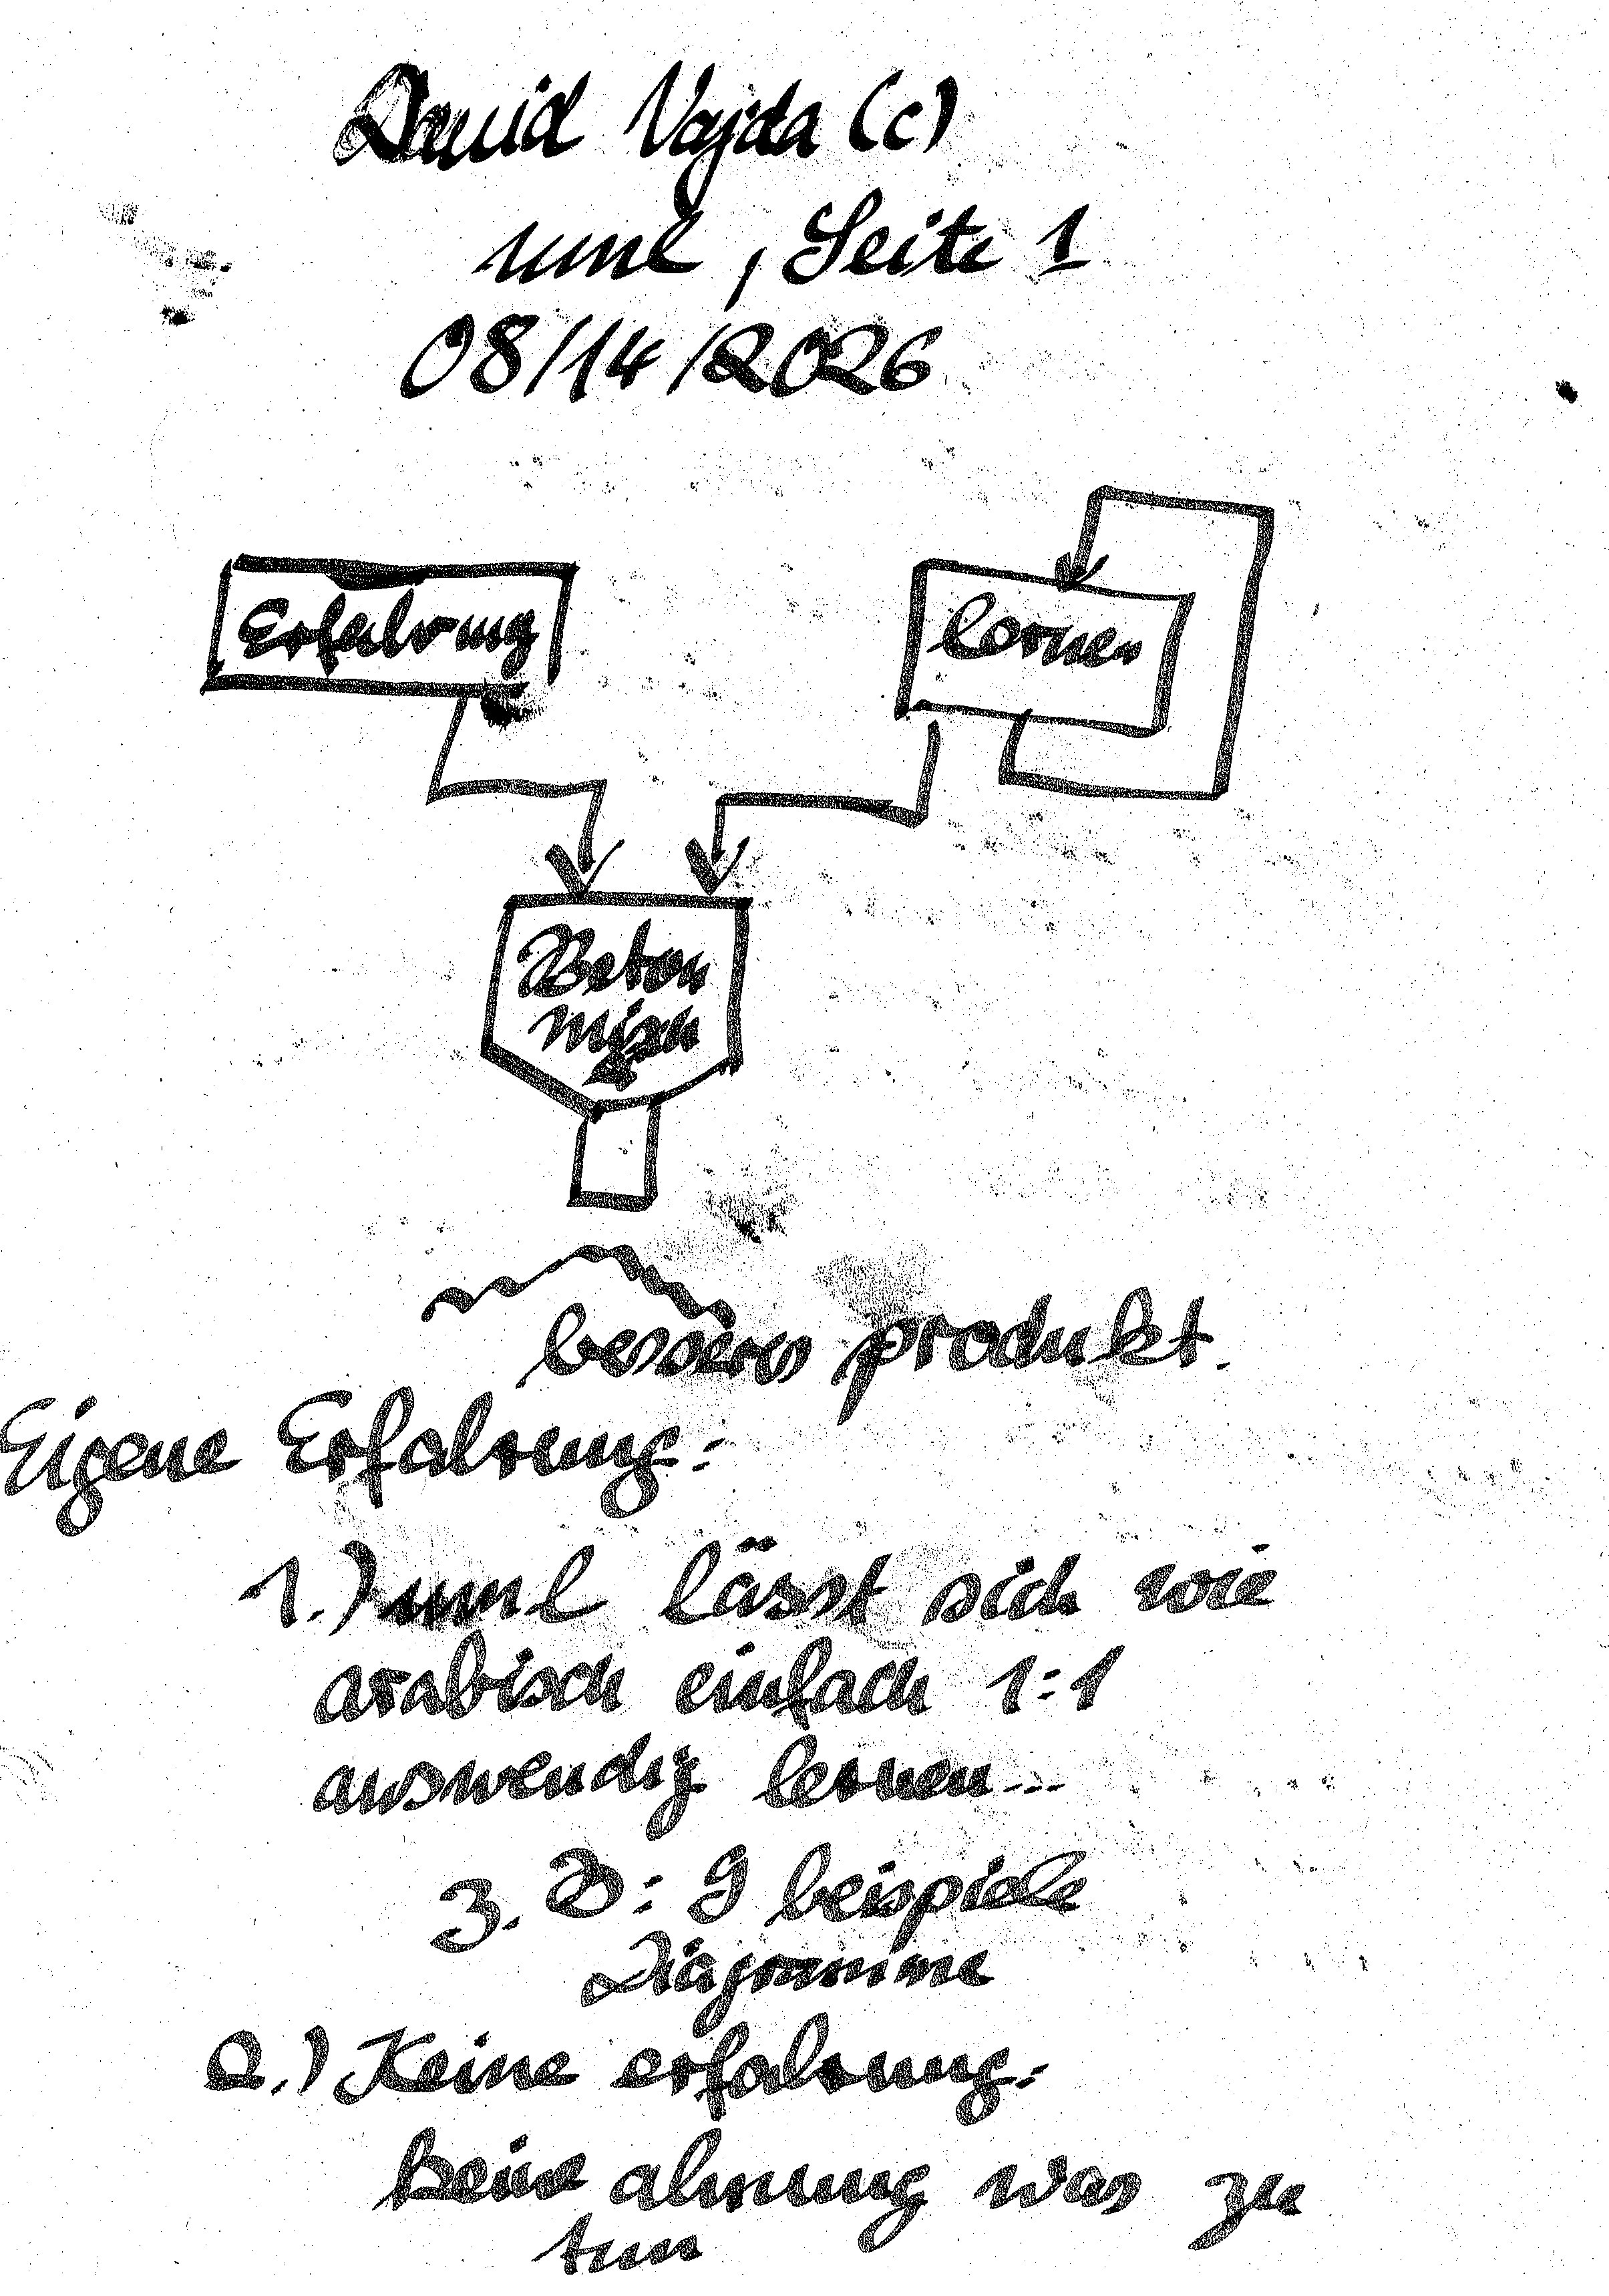 David Vajda (c)
uml, Seite 1
08/14/2026
Erfahrung
lernen
Beton
mixn
besseres produkt.
Eigene Erfahrung:
1.) uml lässt sich wie
arabisch einfach 1:1
auswendig lernen...
z.B: 9 beispiele
Diagramme
2.) Keine erfahrung:
keine ahnung was zu
tun